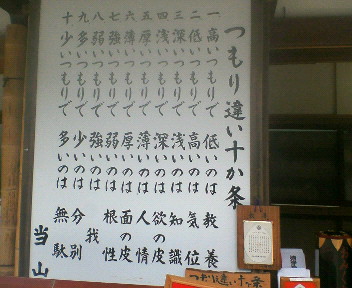 つもり違い十か条
一 高いつもりで 低いのは 教養
二 低いつもりで 高いのは 気位
三 深いつもりで 浅いのは 知識
四 浅いつもりで 深いのは 欲の皮
五 厚いつもりで 薄いのは 人情
六 薄いつもりで 厚いのは 面の皮
七 強いつもりで 弱いのは 根性
八 弱いつもりで 強いのは 我
九 多いつもりで 少いのは 分別
十 少いつもりで 多いのは 無駄
当山
つもり違い十ヶ条